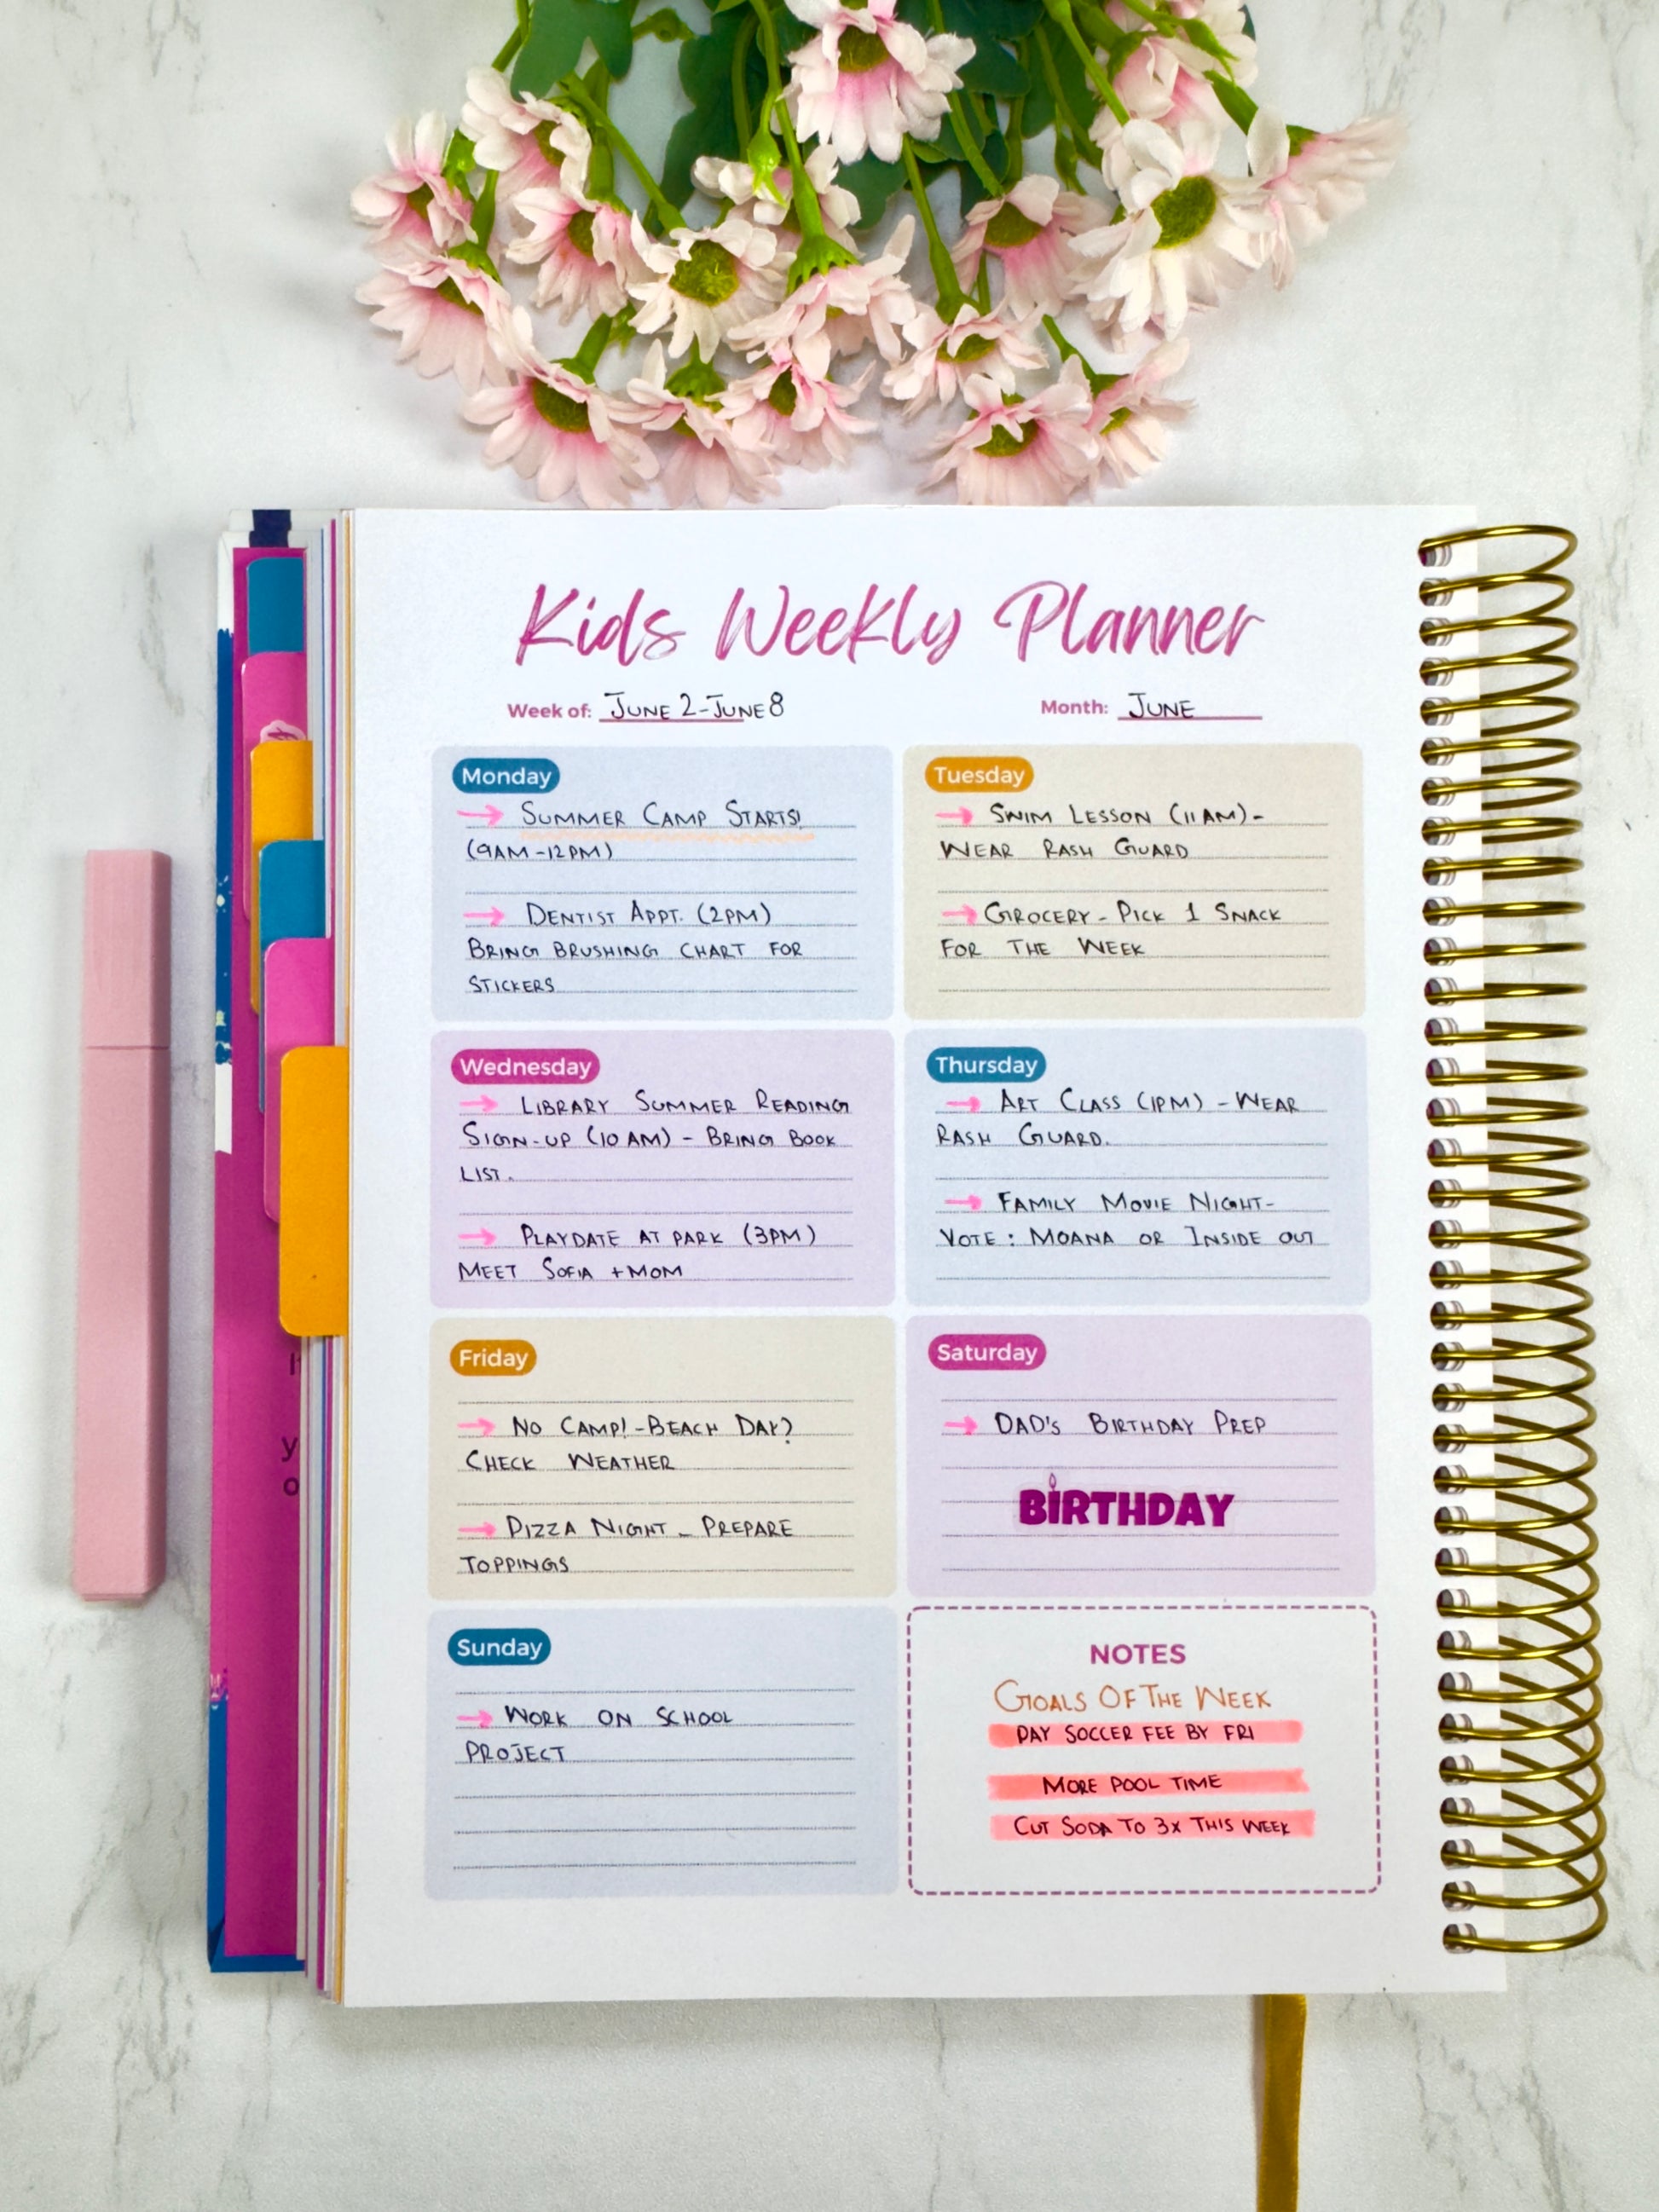 Kids Weekly Planner
Week of: JUNE 2-JUNE 8
Month: JUNE
Monday
→ SUMMER CAMP STARTS!
(9AM-12PM)
→ DENTIST APPT. (2PM)
BRING BRUSHING CHART FOR
STICKERS
Tuesday
→ SWIM LESSON (11AM)-
WEAR RASH GUARD
→ GROCERY - PICK 1 SNACK
FOR THE WEEK
Wednesday
→ LIBRARY SUMMER READING
SIGN-UP (10AM) - BRING BOOK
LIST.
→ PLAYDATE AT PARK (3PM)
MEET SOFIA +MOM
Thursday
→ ART CLASS (1PM) - WEAR
RASH GUARD.
→ FAMILY MOVIE NIGHT-
VOTE: MOANA OR INSIDE OUT
Friday
→ NO CAMP!-BEACH DAY?
CHECK WEATHER
→ PIZZA NIGHT - PREPARE
TOPPINGS
Saturday
→ DAD'S BIRTHDAY PREP
BIRTHDAY
Sunday
→ WORK ON SCHOOL
PROJECT
NOTES
GOALS OF THE WEEK
PAY SOCCER FEE BY FRI
MORE POOL TIME
CUT SODA TO 3X THIS WEEK